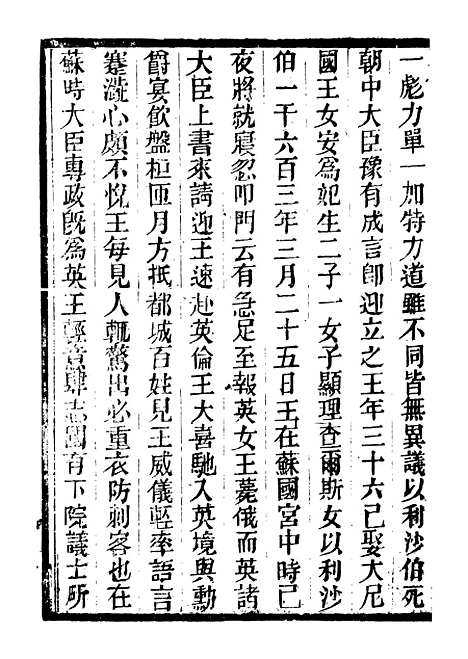 一彪力單一加特力道雖不同皆無異議以利沙伯死
朝中大臣豫有成言卽迎立之王年三十六已娶大尼
國王女安爲妃生二子一女子顯理查爾斯女以利沙
伯一千六百三年三月二十五日王在蘇國宮中時已
夜將就寢忽叩門云有急足至報英女王薨俄而英諸
大臣上書來請迎王速赴英倫王大喜馳入英境與勳
爵宴飲盤桓匝月方抵都城百姓見王威儀輕率語言
蹇澁心頗不悅王每見人輒驚出必重衣防刺客也在
蘇時大臣專政旣爲英王輕言肆志國有下院議士所